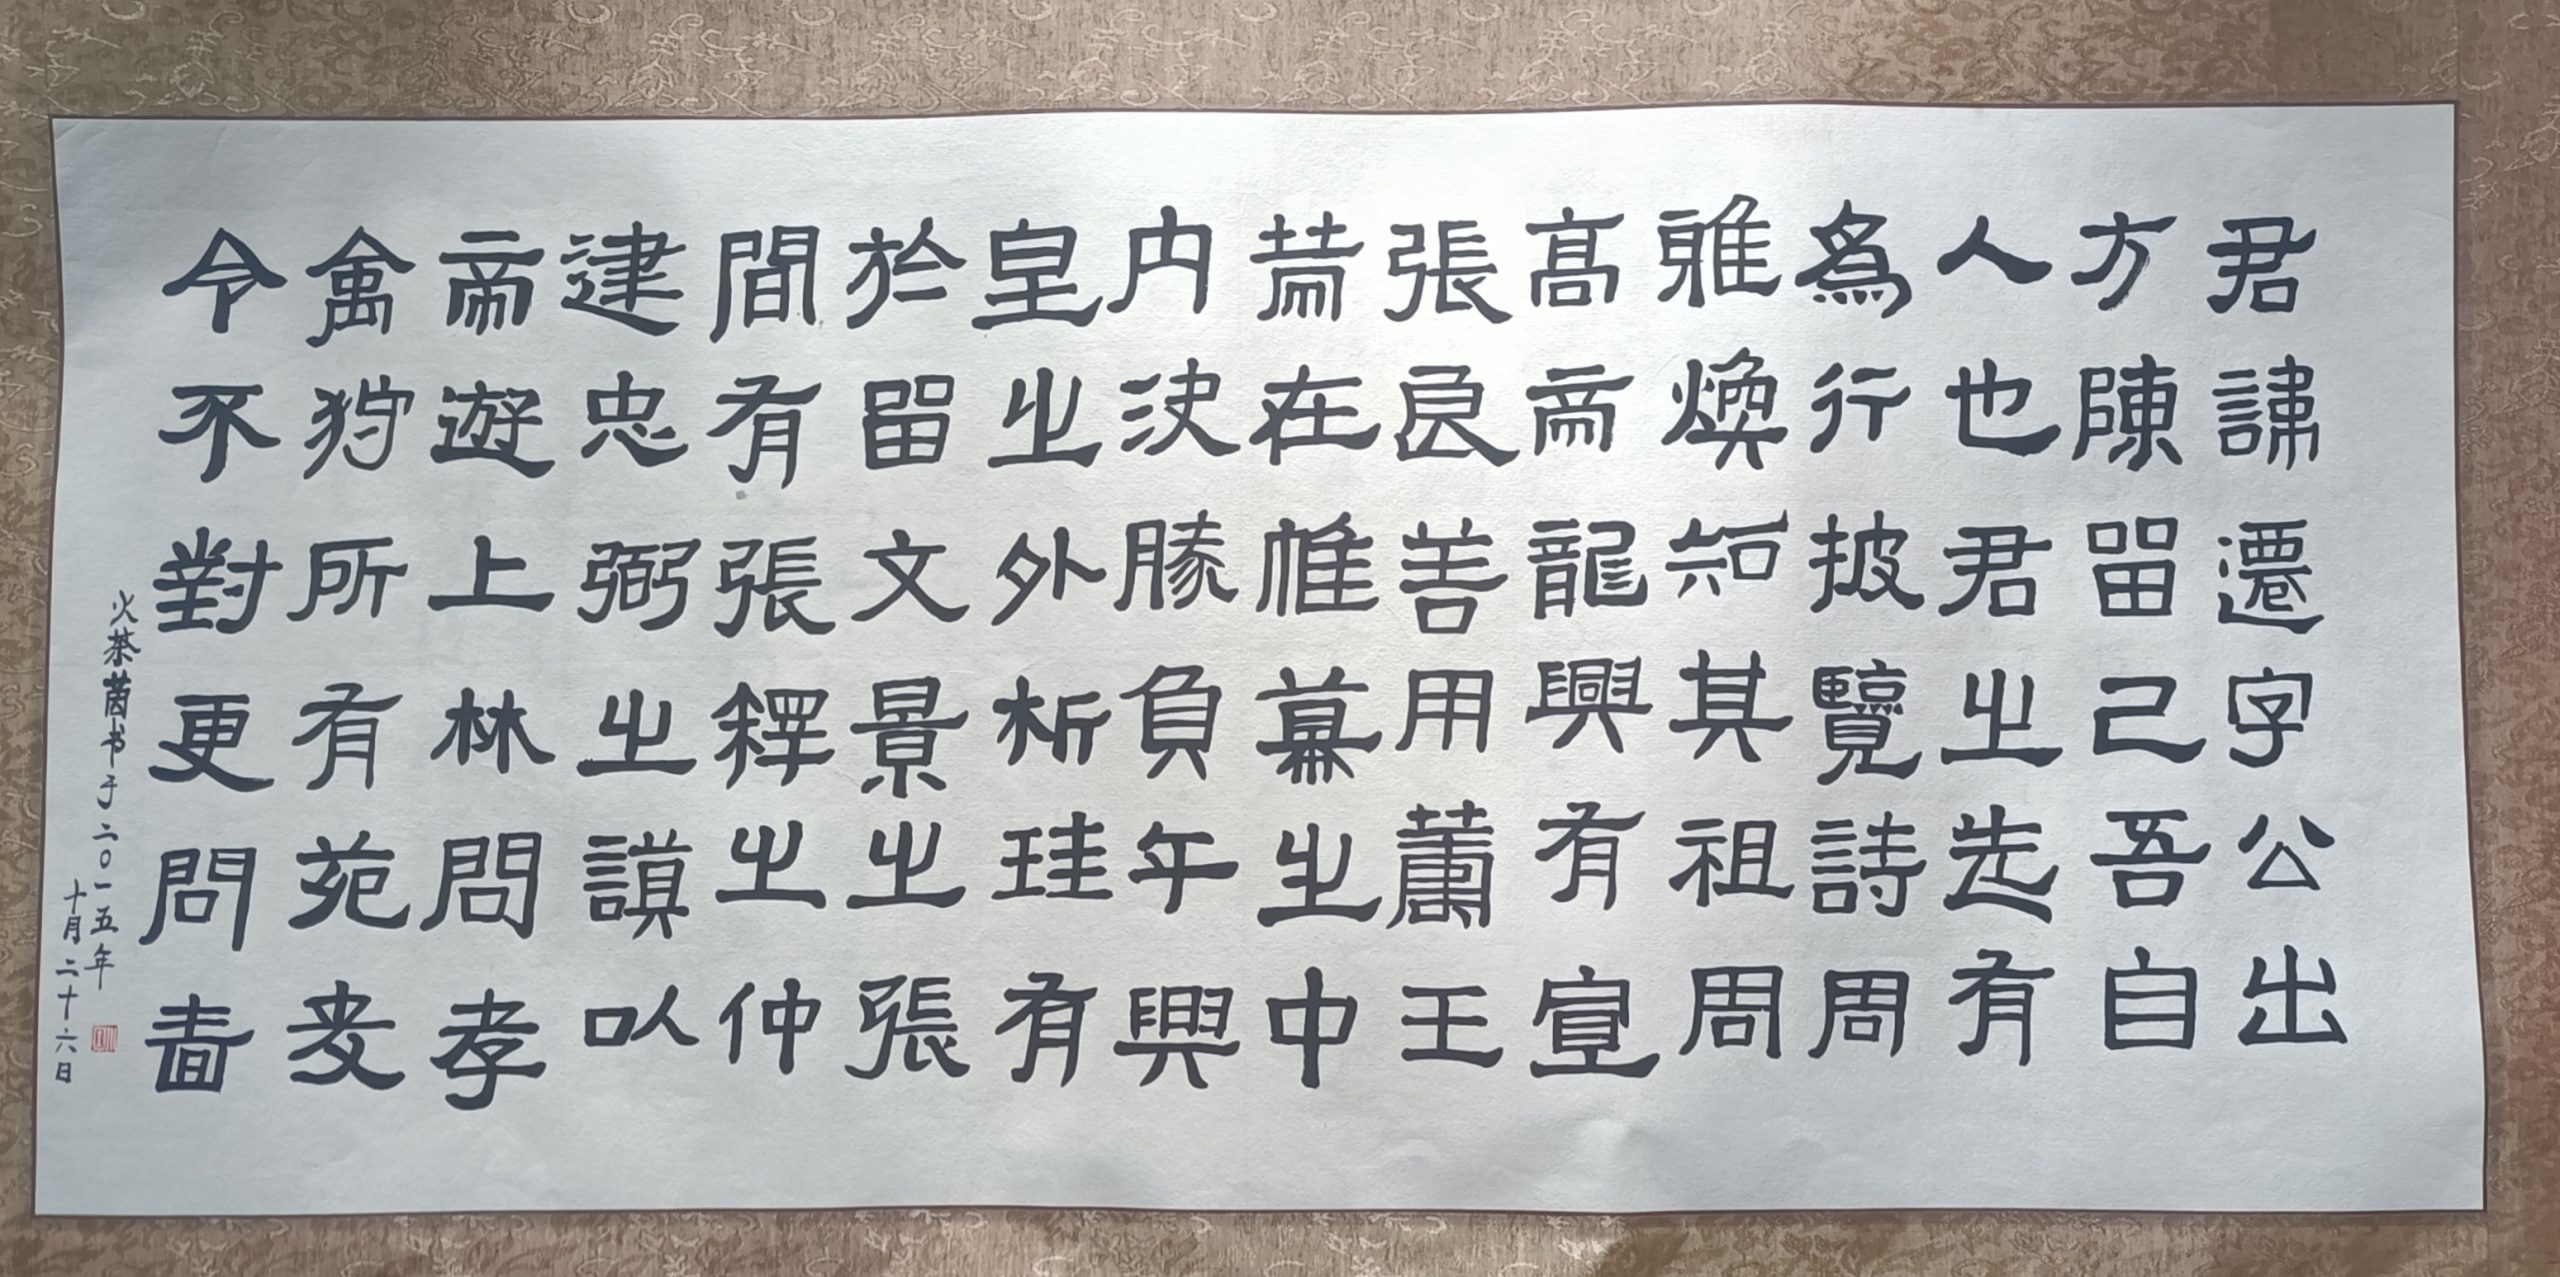 君諱遷字公出
方陳留己吾自
人也君之先有
為行披覽詩周
雅煥知其祖周
高帝龍興有宣
張良善用蕭王
策在帷幕之中
内決勝負千興
里之外析珪有
於留文景之張
間有張釋之仲
建忠弼之謨以
帝遊上林問孝
禽狩所有苑友
令不對更問嗇
火棻茵书于二〇一五年
十月二十六日